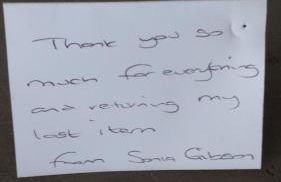 Thank you so
much for everything
and returning my
last item
from Sonia Gibson